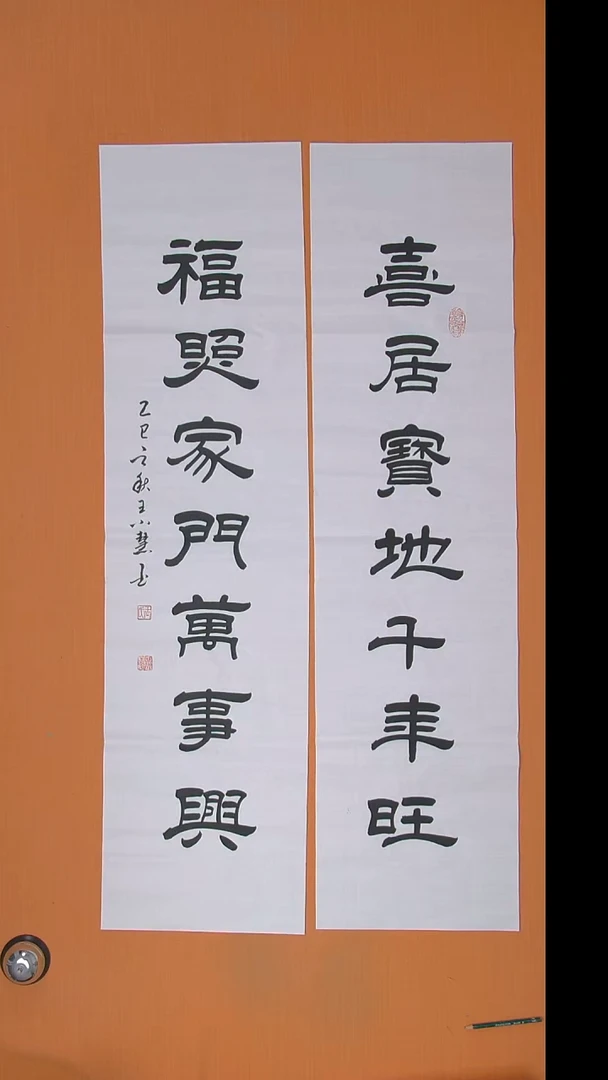 喜居寶地千年旺
福照家門萬事興
乙巳之秋王小慧書